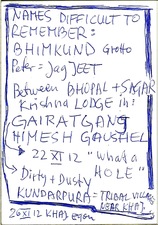 NAMES DIFFICULT TO
REMEMBER:
BHIMKUND Grotto
Peter = JagJEET
Between BHOPAL + SAGAR
Krishna LODGE in:
GAIRATGANG
HIMESH GAUSHEL
22 XI 12 "What a
HOLE"
Dirty + Dusty
KUNDARPURA = TRIBAL VILLAGE
NEAR KHAJ
26 XI 12 KHAJ